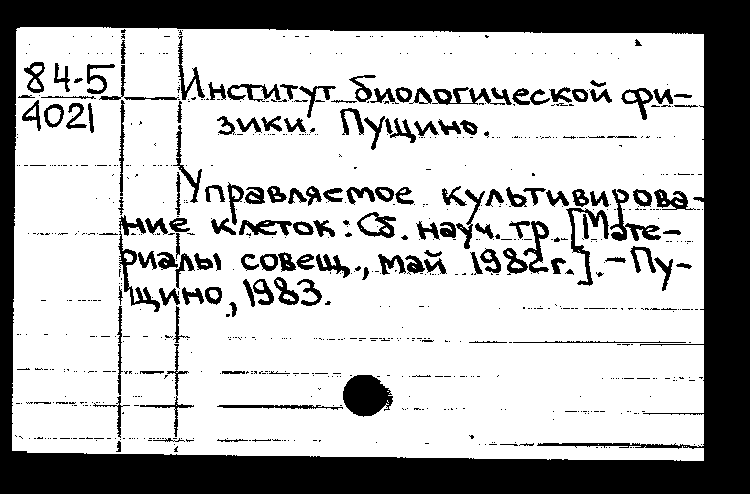 84-5
4021
Институт биологической фи-
зики. Пущино.
Управляемое культивирова-
ние клеток: Сб. науч. тр. [Мате-
риалы совещ., май 1982г.]. - Пу-
щино, 1983.